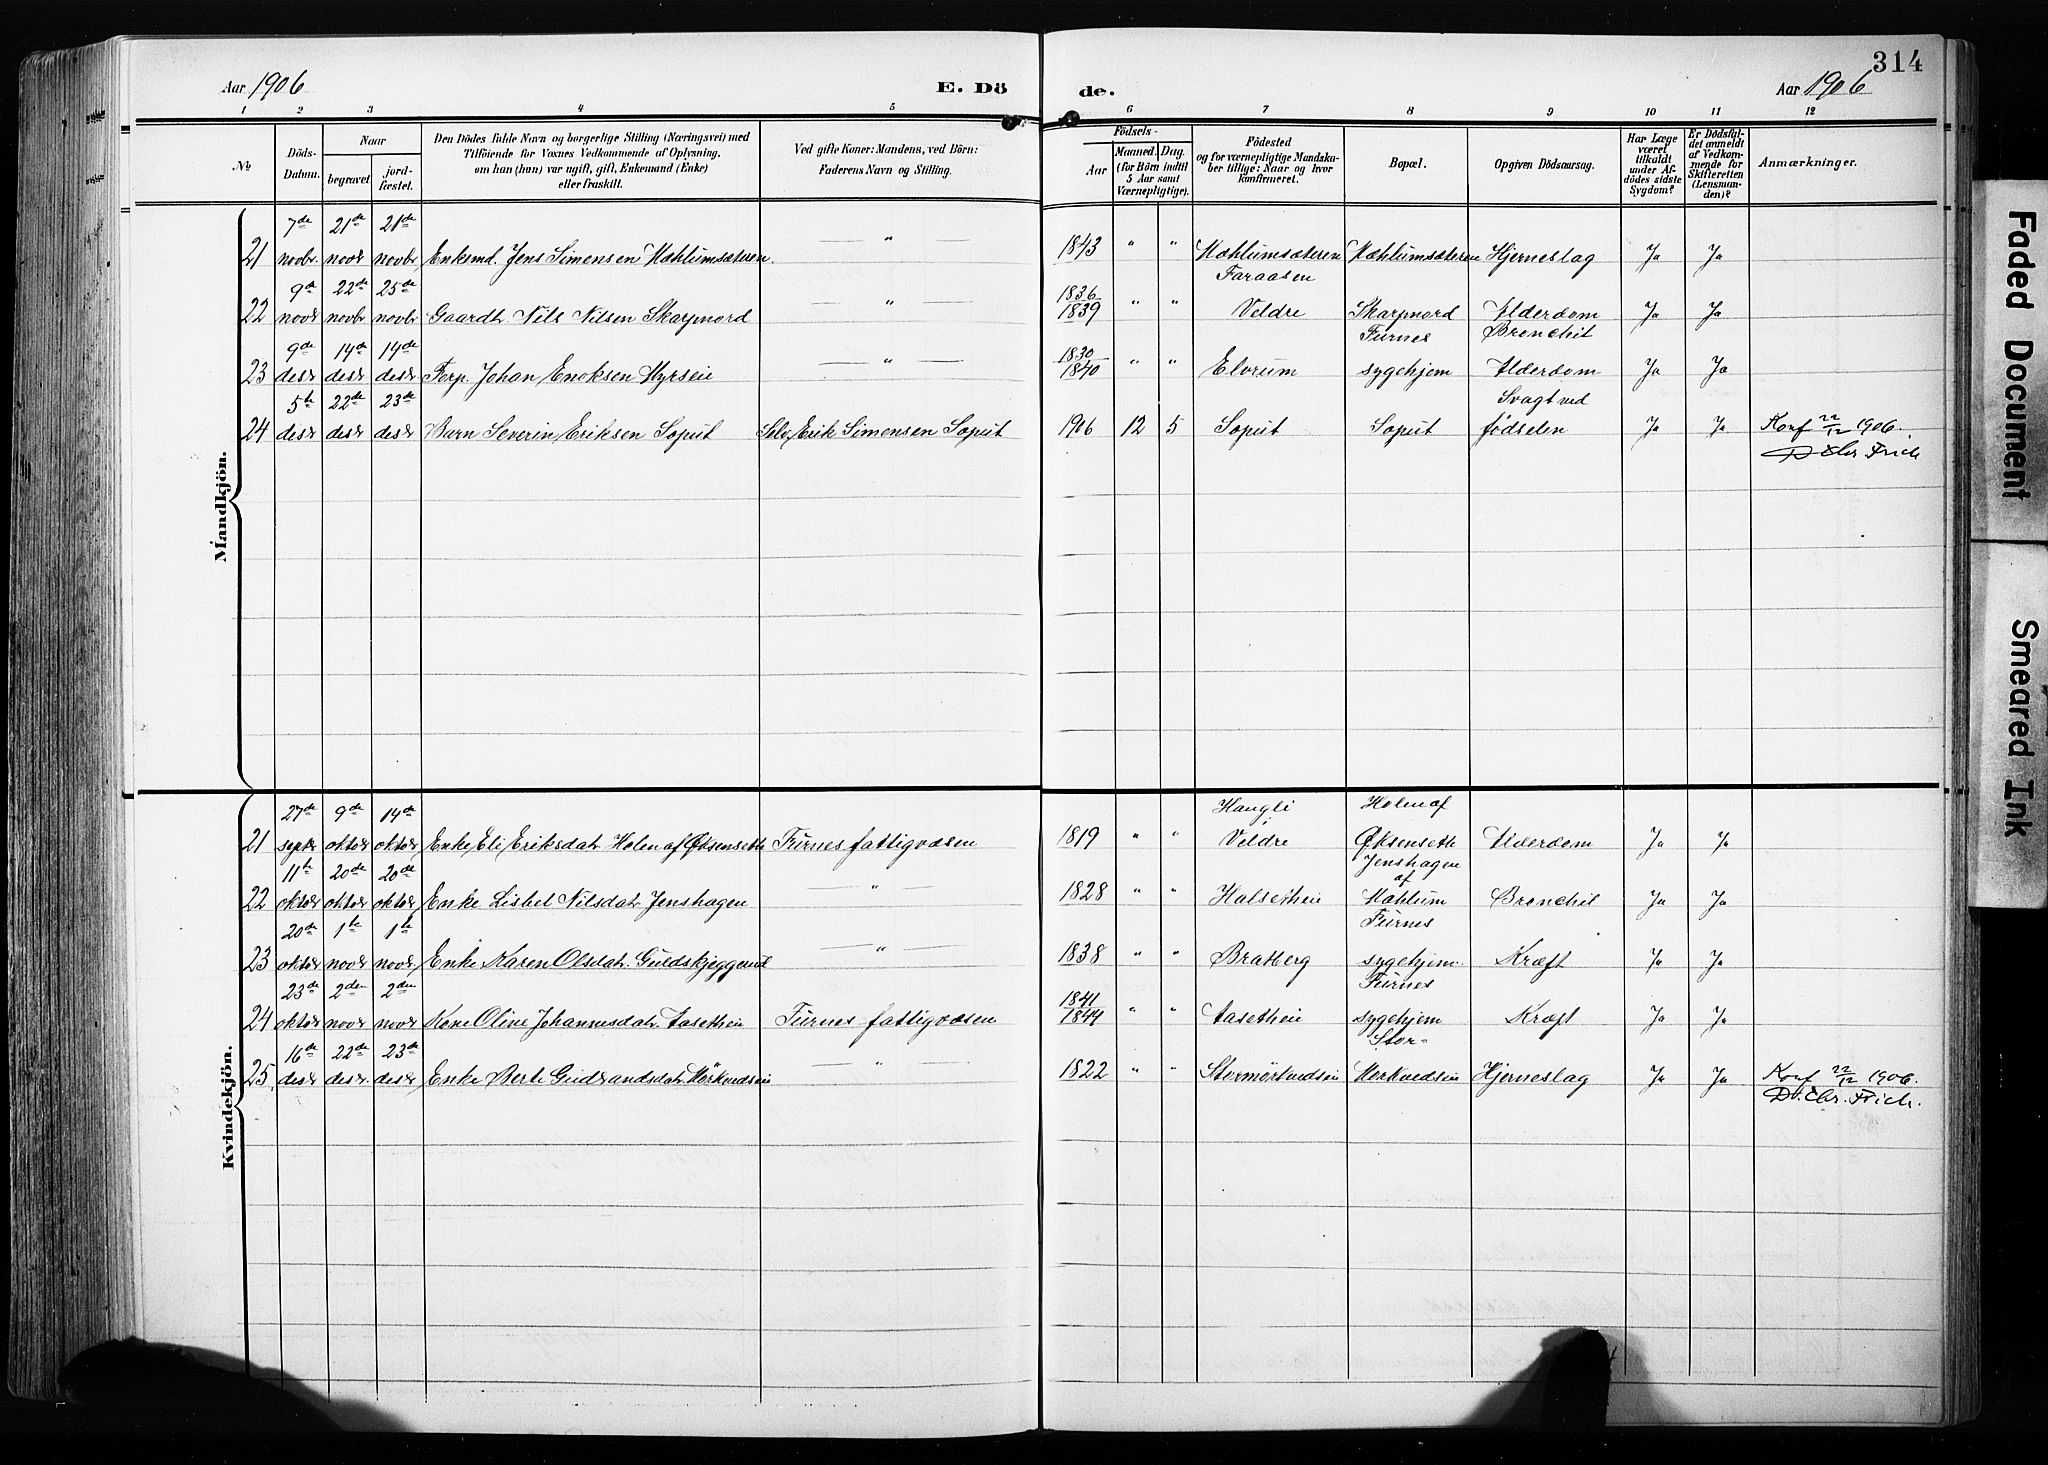 314
Aar 1906 E. Dö de. Aar 1906
1 2 3 4 5 6 7 8 9 10 11 12
No Döds-Datum. Naar begravet jordfæstet. Den Dödes fulde Navn og borgerlige Stilling (Næringsvei) med Tilföiende for Voxnes Vedkommende af Oplysning, om han (hun) var ugift, gift, Enkemand (Enke) eller fraskilt. Ved gifte Koner: Mandens, ved Börn: Faderens Navn og Stilling. Födsels- Aar Maaned. Dag. (for Börn indtil 5 Aar samt Værnepligtige). Födested og for værnepligtige Mandskaber tillige: Naar og hvor konfirmeret. Bopæl. Opgiven Dödsaarsag. Har Læge været tilkaldt under Afdödes sidste Sygdom? Er Dödsfaldet anmeldt af Vedkommende for Skifteretten (Lensmanden)? Anmærkninger.
Mandkjön.
7de 21de 21de
21 novbr. novbr novbr Enkemd. Jens Simensen Mæhlumsæteren — " — 1843 " " Mæhlumsæteren Mæhlumsæteren Hjerneslag Ja Ja
9de 22de 25de Faraasen
22 novbr novbr novbr Gaardbr. Nils Nilsen Skarpnord — " — 1836/1839 " " Veldre Skarpnord Alderdom Ja Ja
9de 14de 14de Furnes Bronchit
23 desbr desbr desbr Torp. Johan Enoksen Myrseie — " — 1830/1840 " " Elvrum sygehjem Alderdom Ja Ja
5te 22de 23de Svagt ved
24 desbr desbr desbr Barn Severin Eriksen Soput Selv. Erik Simensen Soput 1906 12 5 Soput Soput fødselen Ja Ja Konf 22/12 1906.
D Chr Frich
Kvindekjön.
27de 9de 14de Holen af
21 septbr oktbr oktbr Enke Eli Eriksdatr Holen af Øksenseth Furnes fattigvæsen 1819 " " Veldre Øksenseth Alderdom Ja Ja
11te 20de 20de Jenshagen af
22 oktbr oktbr oktbr Enke Lisbet Nilsdatr Jenshagen — " — 1828 " " Halsetheie Mæhlum Bronchit Ja Ja
20de 1te 1te Furnes
23 oktbr novbr novbr Enke Karen Olsdatr. Guldskjeggerud — " — 1838 " " Bratberg sygehjem. Kræft Ja Ja
23de 2den 2den Furnes
24 oktbr novbr novbr Kone Oline Johannesdatr. Aasetheie Furnes fattigvæsen 1841/1844 " " Aasetheie sygehjem Kræft Ja Ja
16de 22de 23de Stor-
25 desbr desbr. desbr Enke Berte Gudbrandsdatr. Mørkvedseie — " — 1822 " " Stormørkvedseie Mørkvedseie Hjerneslag Ja Ja Konf 22/12 1906.
D. Chr. Frich.
Faded Document
Smeared Ink